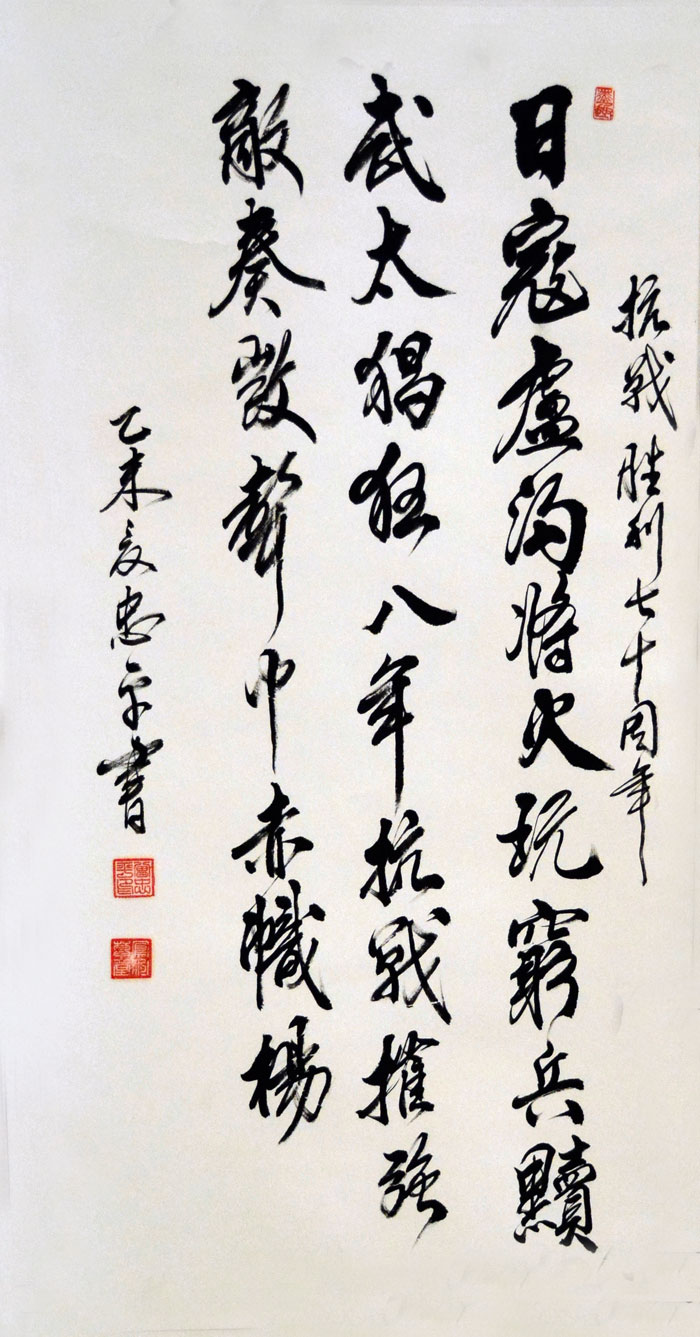 抗戰胜利七十周年
日寇盧沟將火玩窮兵黷
武太猖狂八年抗戰摧强
敵奏凱聲中赤幟楊
乙未夏忠平書